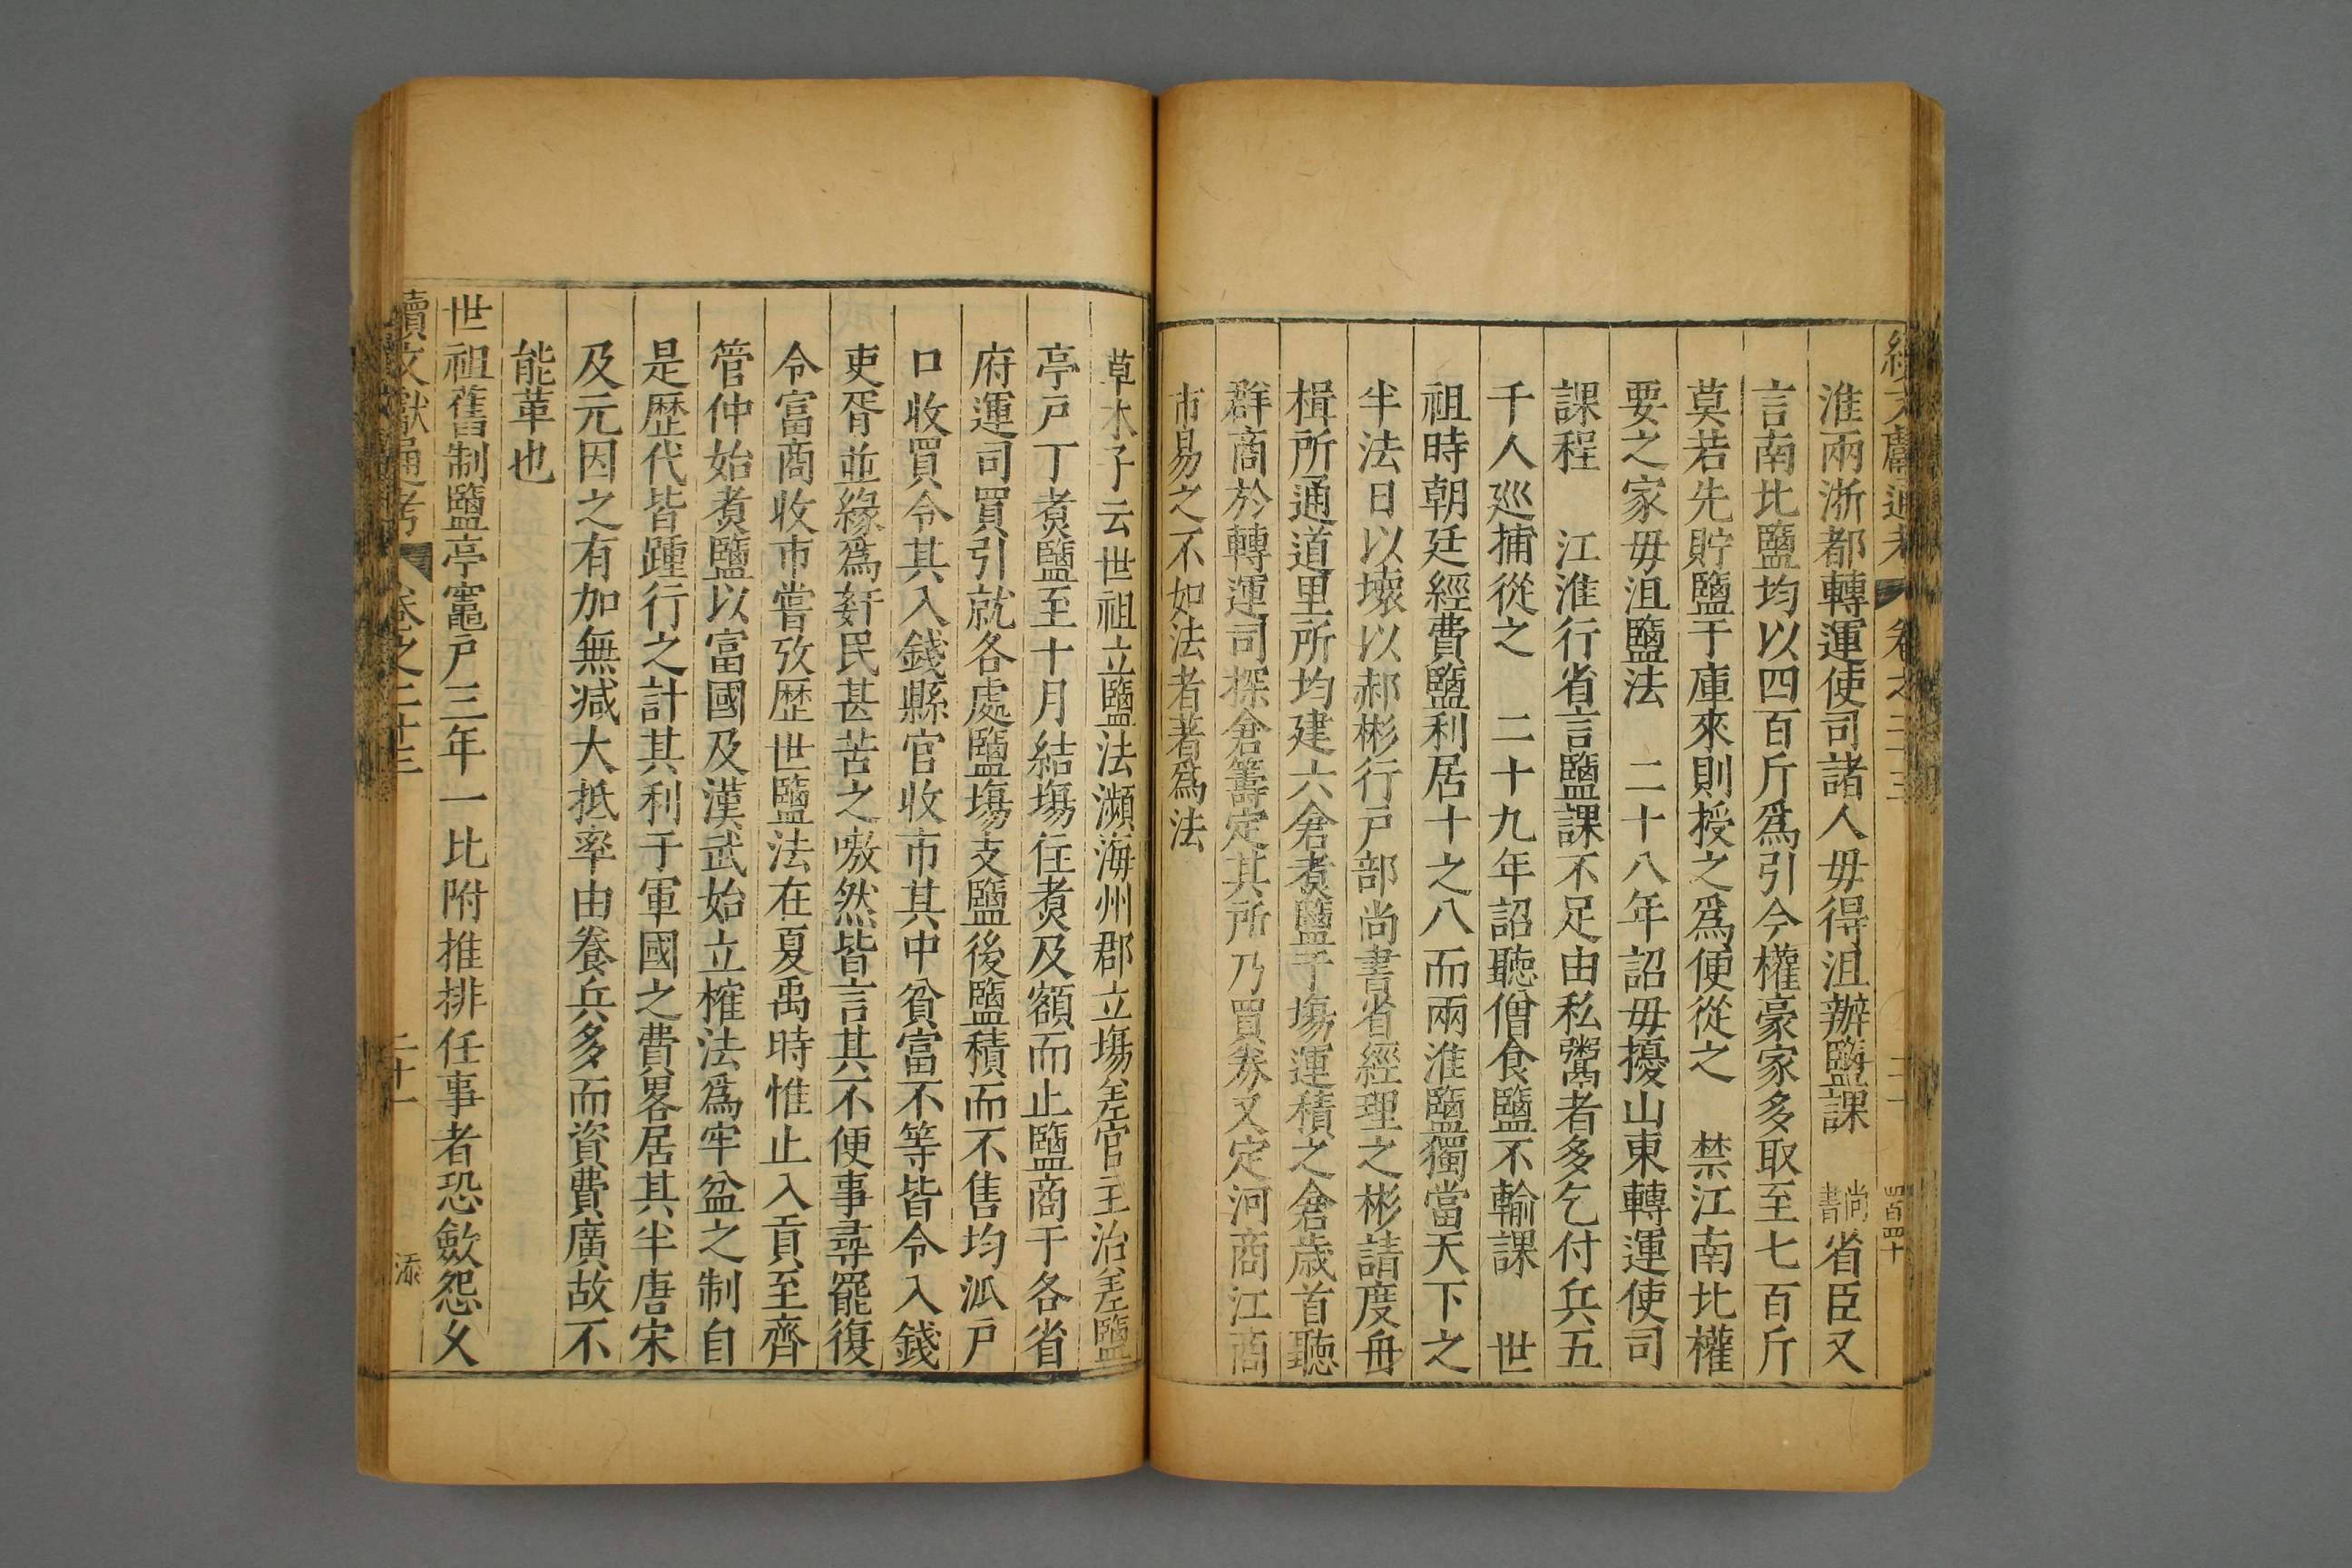 續文獻通考 卷之二十三 二十 四百四十
淮兩浙都轉運使司諸人毋得沮辦鹽課 尚書省臣又
言南北鹽均以四百斤爲引今權豪家多取至七百斤
莫若先貯鹽于庫來則授之爲便從之 禁江南北權
要之家毋沮鹽法 二十八年詔毋擾山東轉運使司
課程 江淮行省言鹽課不足由私鬻者多乞付兵五
千人巡捕從之 二十九年詔聽僧食鹽不輸課 世
祖時朝廷經費鹽利居十之八而兩淮鹽獨當天下之
半法日以壞以郝彬行戶部尚書省經理之彬請度舟
楫所通道里所均建六倉煮鹽于塲運積之倉歲首聽
群商於轉運司探倉籌定其所乃買券又定河商江商
市易之不如法者著爲法
草木子云世祖立鹽法瀕海州郡立塲差官主治差鹽
亭戶丁煮鹽至十月結塲住煮及額而止鹽商于各省
府運司買引就各處鹽塲支鹽後鹽積而不售均泒戶
口收買令其入錢縣官收市其中貧富不等皆令入錢
吏胥並緣爲姧民甚苦之嗷然皆言其不便事尋罷復
令富商收市嘗攷歷世鹽法在夏禹時惟止入貢至齊
管仲始煮鹽以富國及漢武始立榷法爲牢盆之制自
是歷代皆踵行之計其利于軍國之費畧居其半唐宋
及元因之有加無减大抵率由養兵多而資費廣故不
能革也
世祖舊制鹽亭竈戶三年一比附推排任事者恐斂怨乆
續文獻通考 卷之二十三 二十一 添